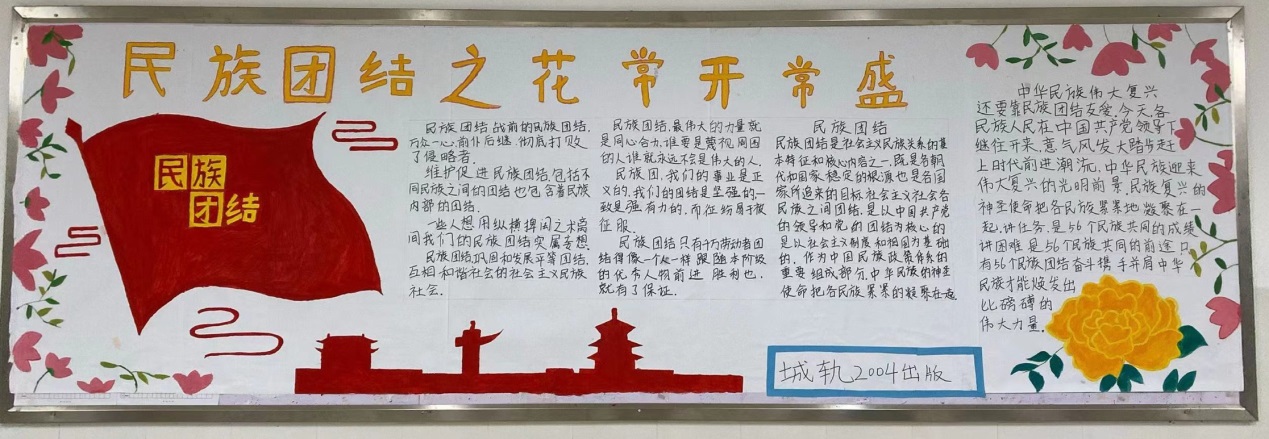 民族团结之花常开常盛
民族
团结
民族团结战前的民族团结,
万众一心,前仆后继,彻底打败
了侵略者.
维护促进民族团结,包括不
同民族之间的团结也包含着民族
内部的团结.
一些人想用纵横捭阖之术离
间我们的民族团结实属妄想.
民族团结巩固和发展平等团结,
互相和谐社会的社会主义民族
社会.
民族团结,最伟大的力量就
是同心合力,谁要是蔑视周围
的人谁就永远不会是伟大的人.
民族团,我们的事业是正
义的,我们的团结是坚强的,一
致是强有力的,而征
征服.
民族团结只有千万劳动者团
结得像一个人一样跟随本阶级
的优秀人物前进 胜利也,
就有了保证.
民族团结
民族团结是社会主义民族关系的基
本特征和核心内容之一,既是各朝
代和国家稳定的根源也是各国
家所追求的目标社会主义社会各
民族之间团结,是以中国共产党
的领导和党的团结为核心的
是以社会主义制度和祖国为基础
的,作为中国民族政策体系的
重要组成部分,中华民族的神圣
使命把各民族累累的凝聚在起
中华民族伟大复兴
还要靠民族团结友爱.今天,各
民族人民在中国共产党领导下
继往开来,意气风发大踏步走
上时代前进潮流,中华民族迎来
伟大复兴的光明前景,民族复兴的
神圣使命把各民族累累地凝聚在一
起,讲任务,是56个民族共同的成绩
讲困难是56个民族共同的前途只
有56个民族团结奋斗携手并肩中华
民族才能焕发出
比磅礴的
伟大力量.
城轨2004出版